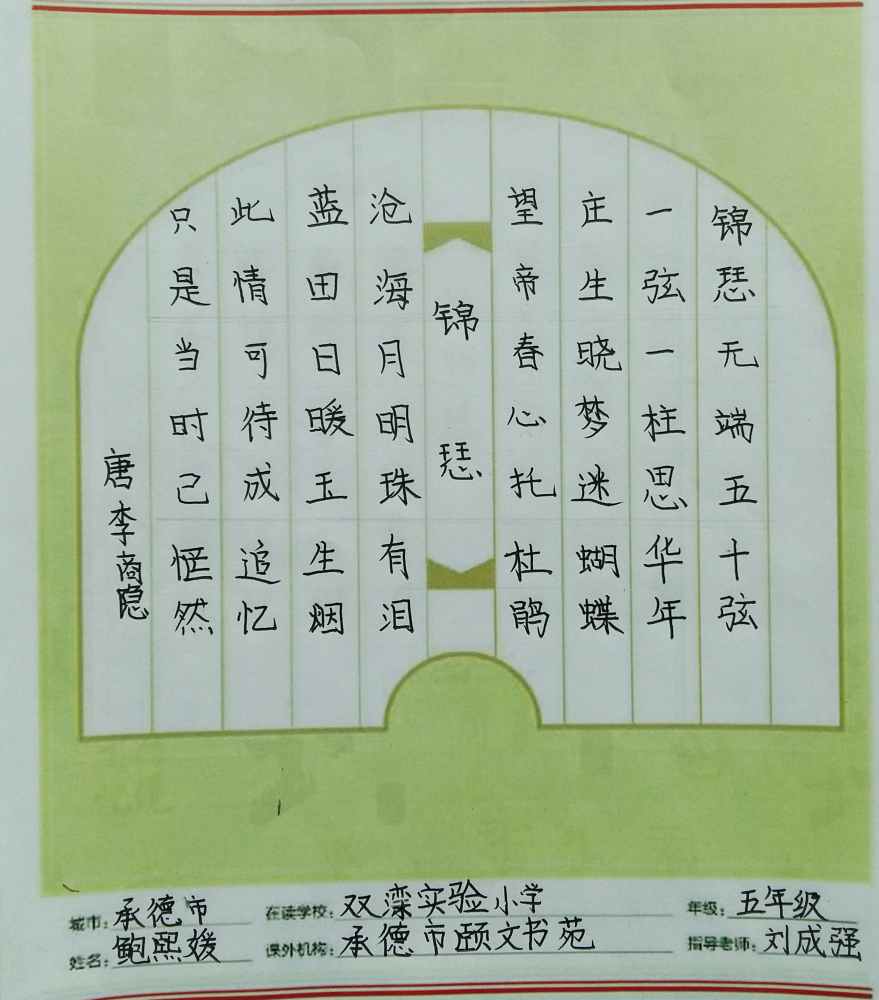 锦瑟无端五十弦
一弦一柱思华年
庄生晓梦迷蝴蝶
望帝春心托杜鹃
锦瑟
沧海月明珠有泪
蓝田日暖玉生烟
此情可待成追忆
只是当时已惘然
唐李商隐
城市：承德市 在读学校：双滦实验小学 年级：五年级
姓名：鲍熙媛 课外机构：承德市颐文书苑 指导老师：刘成强